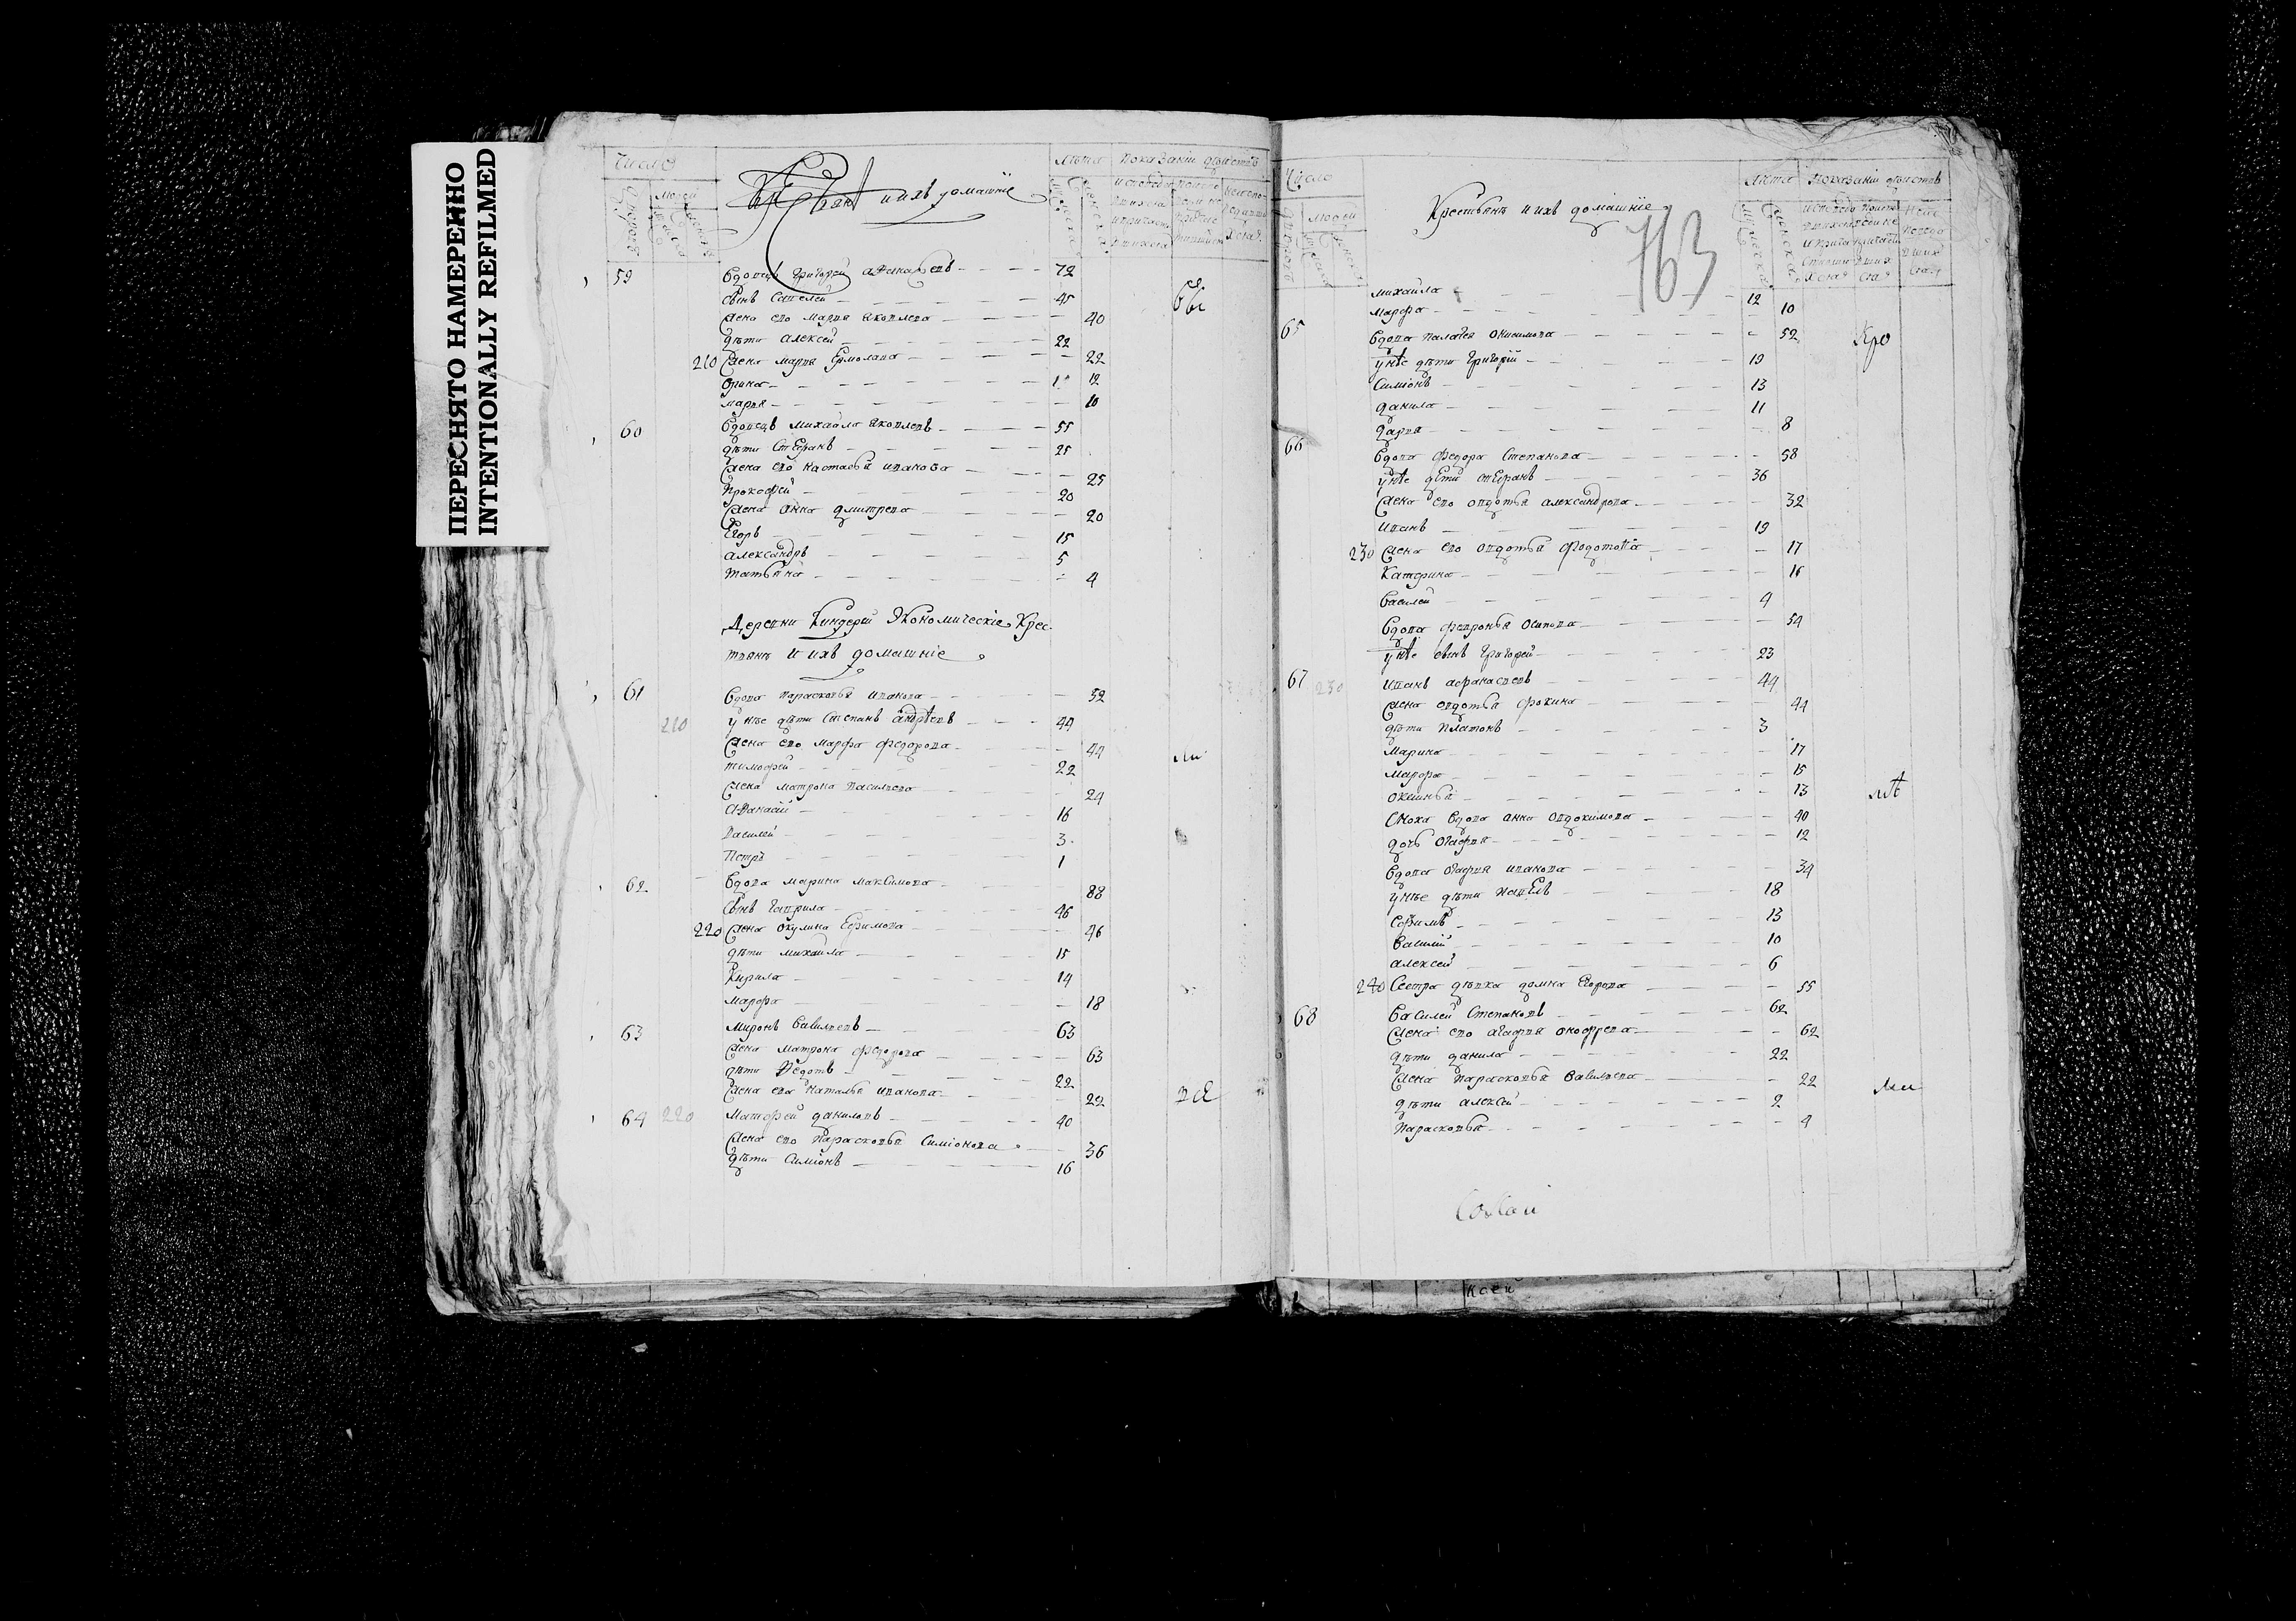 ПЕРЕСНЯТО НАМЕРЕННО
INTENTIONALLY REFILMED
Число
Лѣта Показаніи дѣиствъ
людей
и ихъ домашніе
59 вдовецъ Григорей аѳанасьевъ 72
сынъ Савелей 45
жена ево марья яковлева 40
дѣти алексей 22
210 жена марья Ермолаева 22
орина 12
марья 10
60 вдовецъ михайла яковлевъ 55
дѣти Стефанъ 25
жена ево настасья иванова 25
прокофей 20
жена анна дмитрева 20
Егоръ 15
александръ 5
татьяна 4
Деревни Киндери Экономическіе Крес
тьянъ и ихъ домашніе
61 вдова парасковья иванова 52
210 у нѣе дѣти Степанъ андрѣевъ 44
жена ево марфа федорова 44
тимофей 22
жена матрона васильева 24
Аѳанасій 16
василей 3
Петръ 1
ли
62 вдова марина максимова 88
сынъ гаврила 46
220 жена окулина Ефимова 46
дѣти михайла 15
Кирила 14
марфа 18
63 миронъ васильевъ 63
жена матрона федорова 63
дѣти Федотъ 22
жена ево наталья иванова 22
64 220 матфей даниловъ 40
жена ево парасковья Симіонова 36
дѣти Симіонъ 16
Число
людей
Крестьянъ и ихъ домашніе
763
Лѣта Показаніи дѣиствъ
михайла 12
марфа 10
65 вдова палагея онисимова 52
у нѣе дѣти Григорій 19
Симіонъ 13
данила 11
дарья 8
Кро
66 вдова федора Степанова 58
у нѣе дѣти стефанъ 36
жена ево овдотья александрова 32
иванъ 19
230 жена ево овдотья федотова 17
Катерина 16
василей 9
вдова февронья осипова 54
у нѣе сынъ Григорей 23
67 230 иванъ афанасьевъ 44
жена овдотья фокина 44
дѣти платонъ 3
марина 17
марфа 15
оксинья 13
сноха вдова анна овдокимова 40
дочь огафья 12
вдова огафья иванова 34
у нѣе дѣти павелъ 18
Ефимъ 13
василій 10
алексей 6
240 Сестра дѣвка домна Егорова 55
68 василей Степановъ 62
жена ево агафья онофрева 62
дѣти данила 22
жена парасковья васильева 22
дѣти алексей 2
парасковья 4
ли